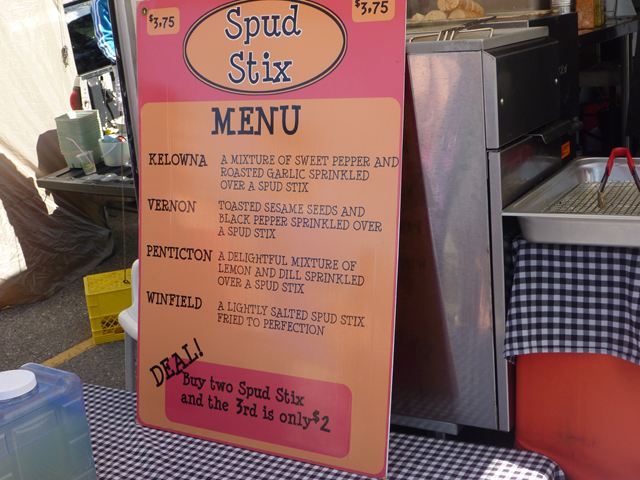 $3.75
$3.75
Spud
Stix
MENU
KELOWNA A MIXTURE OF SWEET PEPPER AND
ROASTED GARLIC SPRINKLED
OVER A SPUD STIX
VERNON TOASTED SESAME SEEDS AND
BLACK PEPPER SPRINKLED OVER
A SPUD STIX
PENTICTON A DELIGHTFUL MIXTURE OF
LEMON AND DILL SPRINKLED
OVER A SPUD STIX
WINFIELD A LIGHTLY SALTED SPUD STIX
FRIED TO PERFECTION
DEAL!
Buy two Spud Stix
and the 3rd is only $2